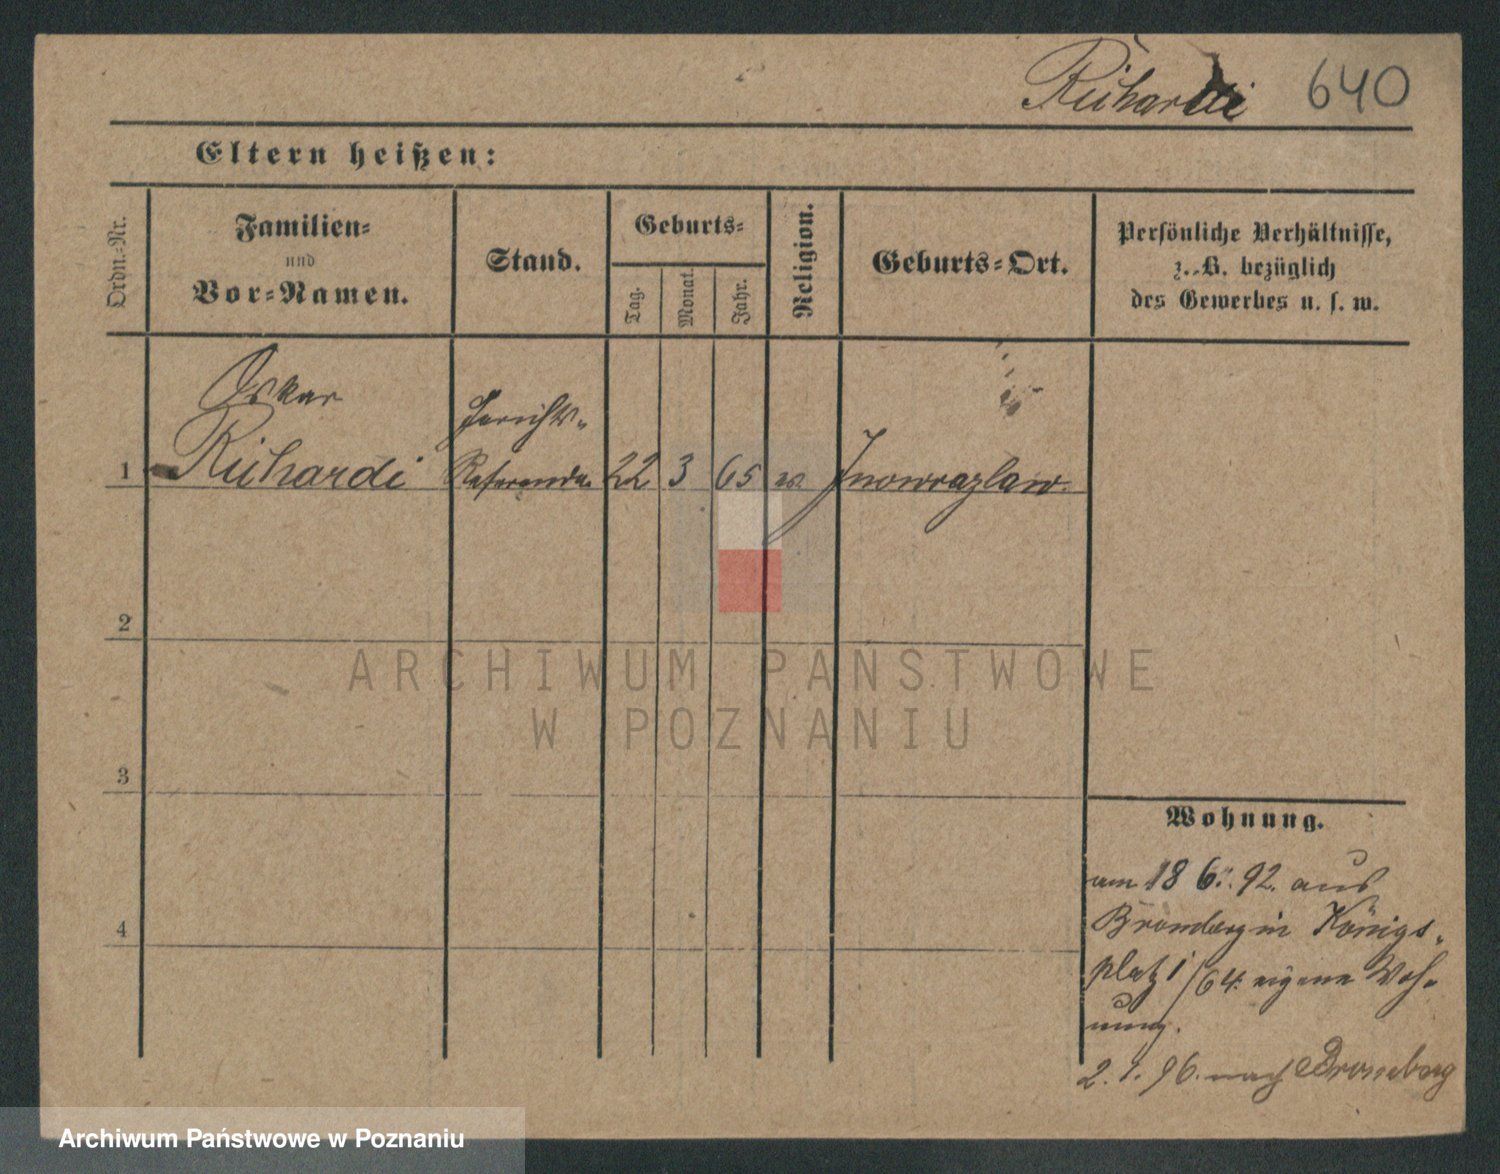 Richardi 640
Eltern heißen:
Ordn.-Nr.
Familien-
und
Vor-Namen.
Stand.
Geburts-
Tag.
Monat.
Jahr.
Religion.
Geburts-Ort.
Persönliche Verhältnisse,
z. B. bezüglich
des Gewerbes u. s. w.
Oskar
Gerichts-
1 Richardi Referendar 22 3 65 ev. Inowrazlaw.
2
3
4
Wohnung.
am 18 6. 92. aus
Bromberg in Königs-
platz 64. eigene Woh-
nung.
2. 1. 96. nach Bromberg
ARCHIWUM PAŃSTWOWE
W POZNANIU
Archiwum Państwowe w Poznaniu